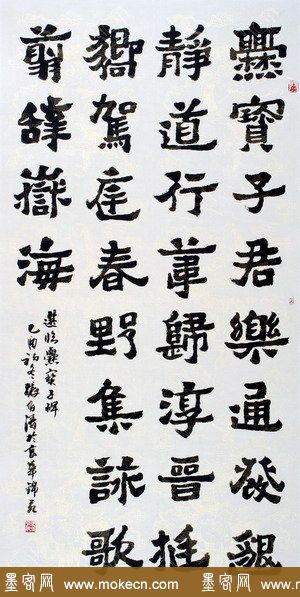 爨寶子君樂通發懇
靜道行葦歸淳晉推
鄉駕庭春野集詠歌
翦嶽海
選臨爨寶子碑
乙酉初冬張於華錦
墨客网 www.mokecn.com 墨客网 www.mokecn.com